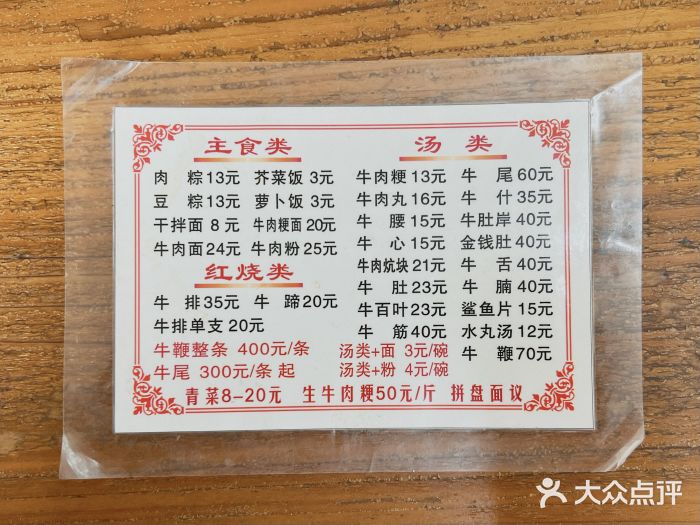 主食类
肉 粽13元 芥菜饭 3元
豆 粽13元 萝卜饭 3元
干拌面 8 元 牛肉粳面20元
牛肉面24元 牛肉粉25元
红烧类
牛 排35元 牛 蹄20元
牛排单支 20元
汤 类
牛肉粳13元 牛 尾60元
牛肉丸16元 牛 什35元
牛 腰15元 牛肚岸40元
牛 心15元 金钱肚40元
牛肉炕块21元 牛 舌40元
牛 肚23元 牛 腩40元
牛百叶23元 鲨鱼片15元
牛 筋40元 水丸汤12元
牛 鞭70元
牛鞭整条 400元/条 汤类+面 3元/碗
牛尾 300元/条 起 汤类+粉 4元/碗
青菜8-20元 生牛肉粳50元/斤 拼盘面议
大众点评